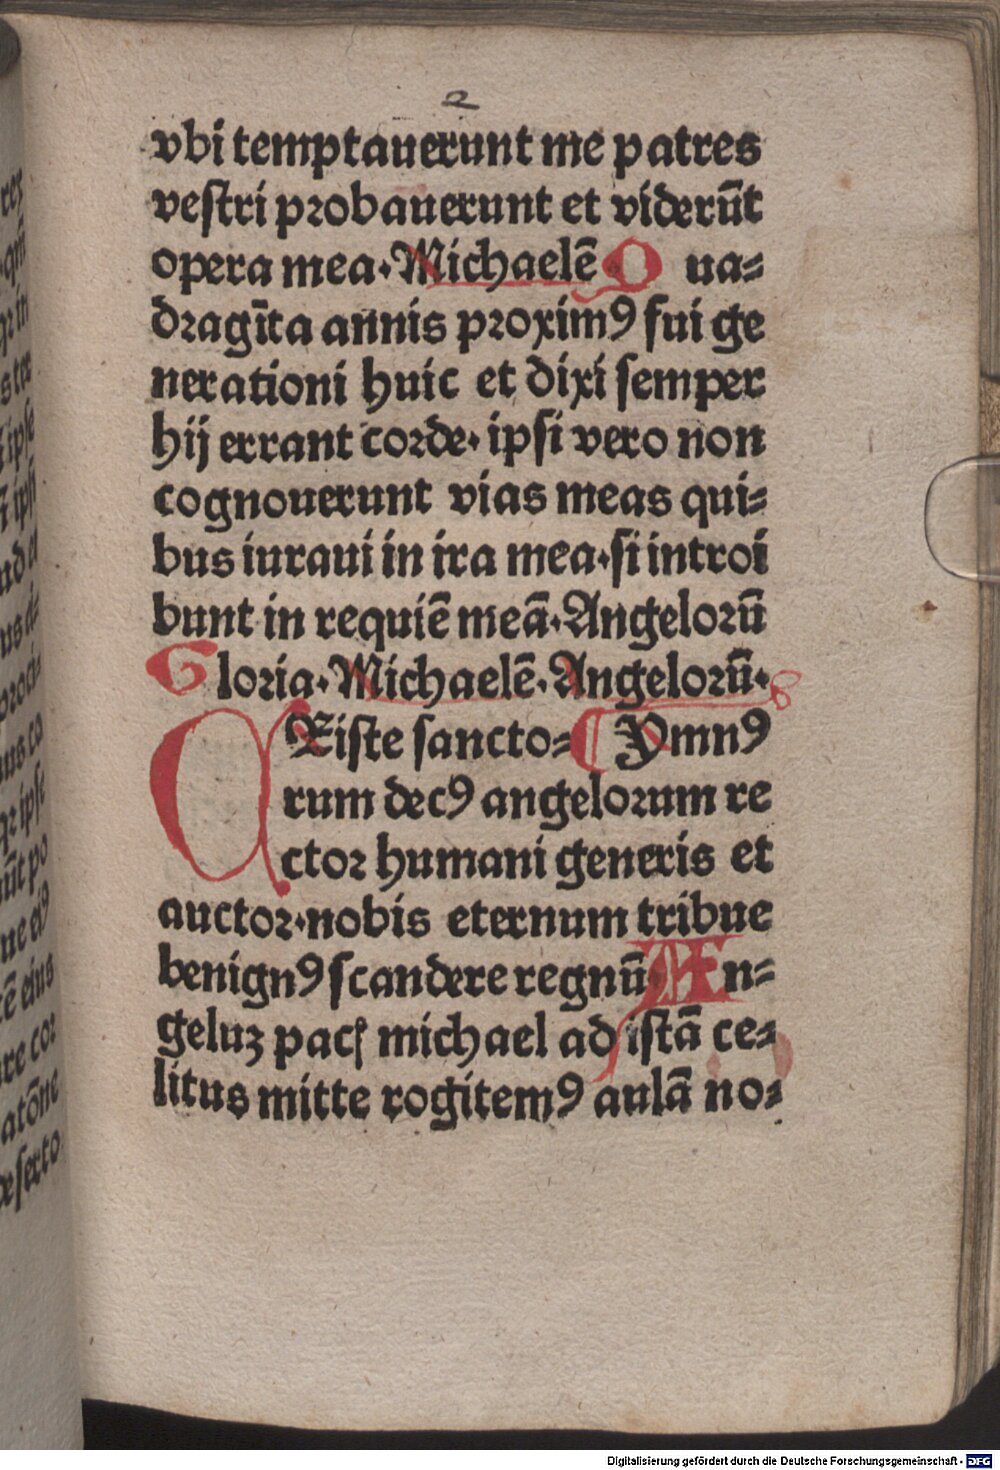 2
vbi temptauerunt me patres
vestri probauerunt et viderūt
opera mea. Michaelē Qua=
dragīta annis proximꝰ fui ge
nerationi huic et dixi semper
hij errant corde. ipsi vero non
cognouerunt vias meas qui=
bus iuraui in ira mea. si introi
bunt in requiē meā. Angelorū
Gloria. Michaelē. Angelorū.
CRiste sancto= Ymnꝰ
rum decꝰ angelorum re
ctor humani generis et
auctor. nobis eternum tribue
benignꝰ scandere regnū An=
geluʒ pacꝭ michael ad istā ce=
litus mitte rogitemꝰ aulā no=
Digitalisierung gefördert durch die Deutsche Forschungsgemeinschaft - DFG